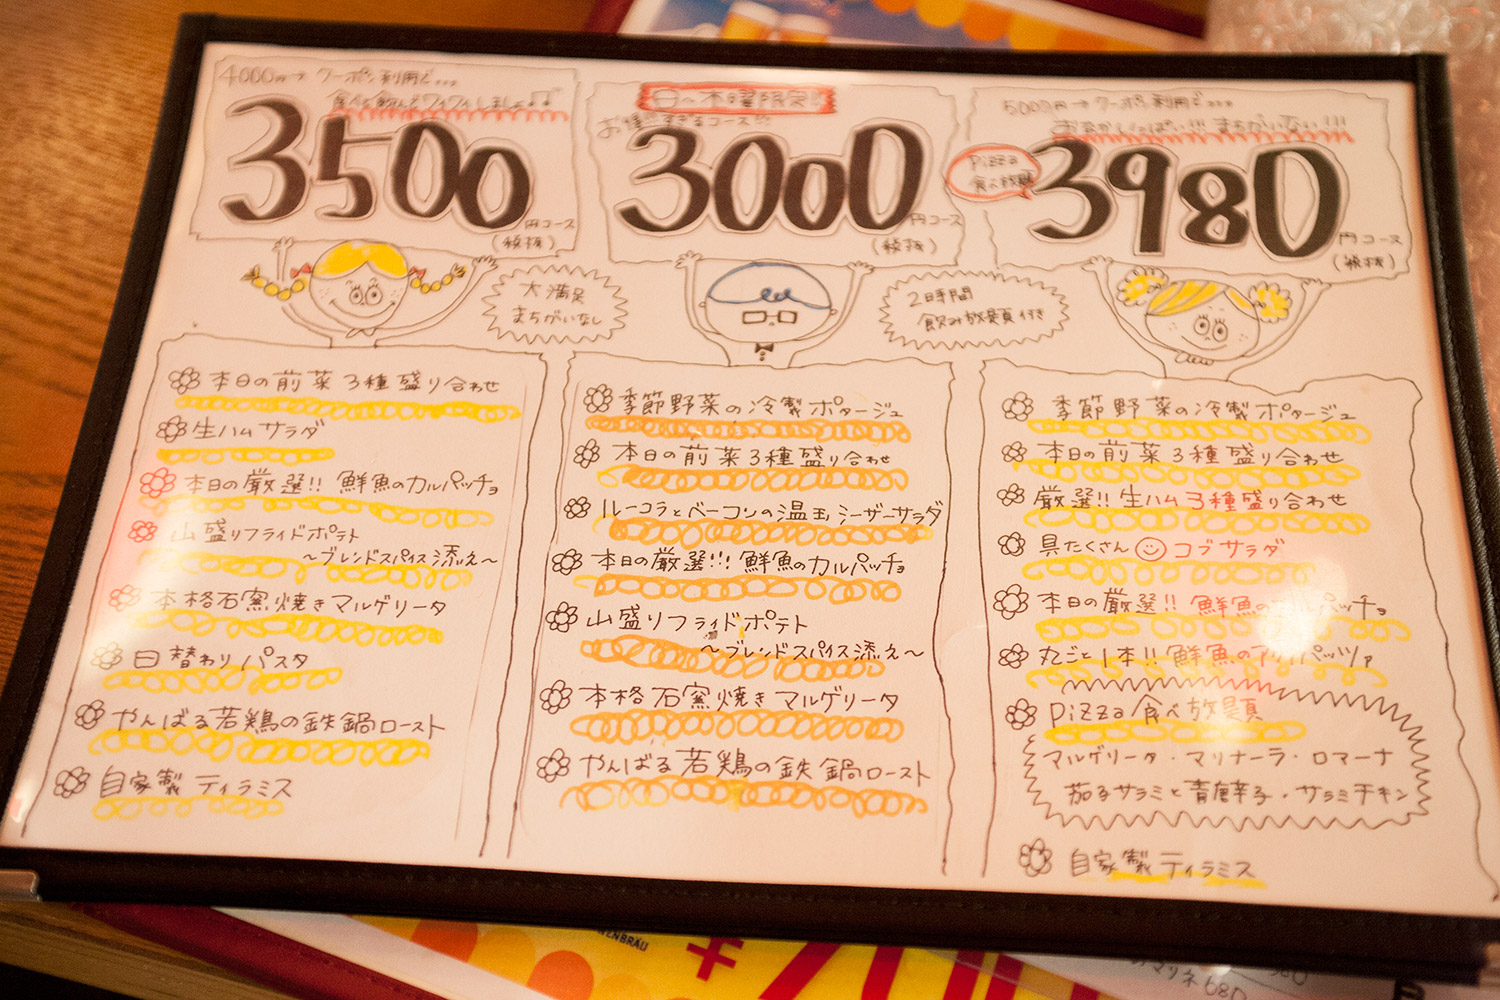 4000円→クーポン利用で...
食べて飲んでワイワイしましょ♫
3500
円コース
(税抜)
大満足
まちがいなし
本日の前菜3種盛り合わせ
生ハムサラダ
本日の厳選!! 鮮魚のカルパッチョ
山盛りフライドポテト
〜ブレンドスパイス添え〜
本格石窯焼きマルゲリータ
日替わりパスタ
やんばる若鶏の鉄鍋ロースト
自家製ティラミス
日〜木曜限定!
お得すぎるコース!!
3000
円コース
(税抜)
2時間
飲み放題付き
季節野菜の冷製ポタージュ
本日の前菜3種盛り合わせ
ルーコラとベーコンの温玉シーザーサラダ
本日の厳選!!! 鮮魚のカルパッチョ
山盛りフライドポテト
〜ブレンドスパイス添え〜
本格石窯焼きマルゲリータ
やんばる若鶏の鉄鍋ロースト
5000円→クーポン利用で...
おなかいっぱい!!! まちがいない!!!
Pizza
食べ放題
3980
円コース
(税抜)
季節野菜の冷製ポタージュ
本日の前菜3種盛り合わせ
厳選!! 生ハム3種盛り合わせ
具たくさん コブサラダ
本日の厳選!! 鮮魚のカルパッチョ
丸ごと1本!! 鮮魚のアクアパッツァ
Pizza食べ放題
マルゲリータ・マリナーラ・ロマーナ
茄子サラミと青唐辛子・サラミチキン
自家製ティラミス
マリネ 680